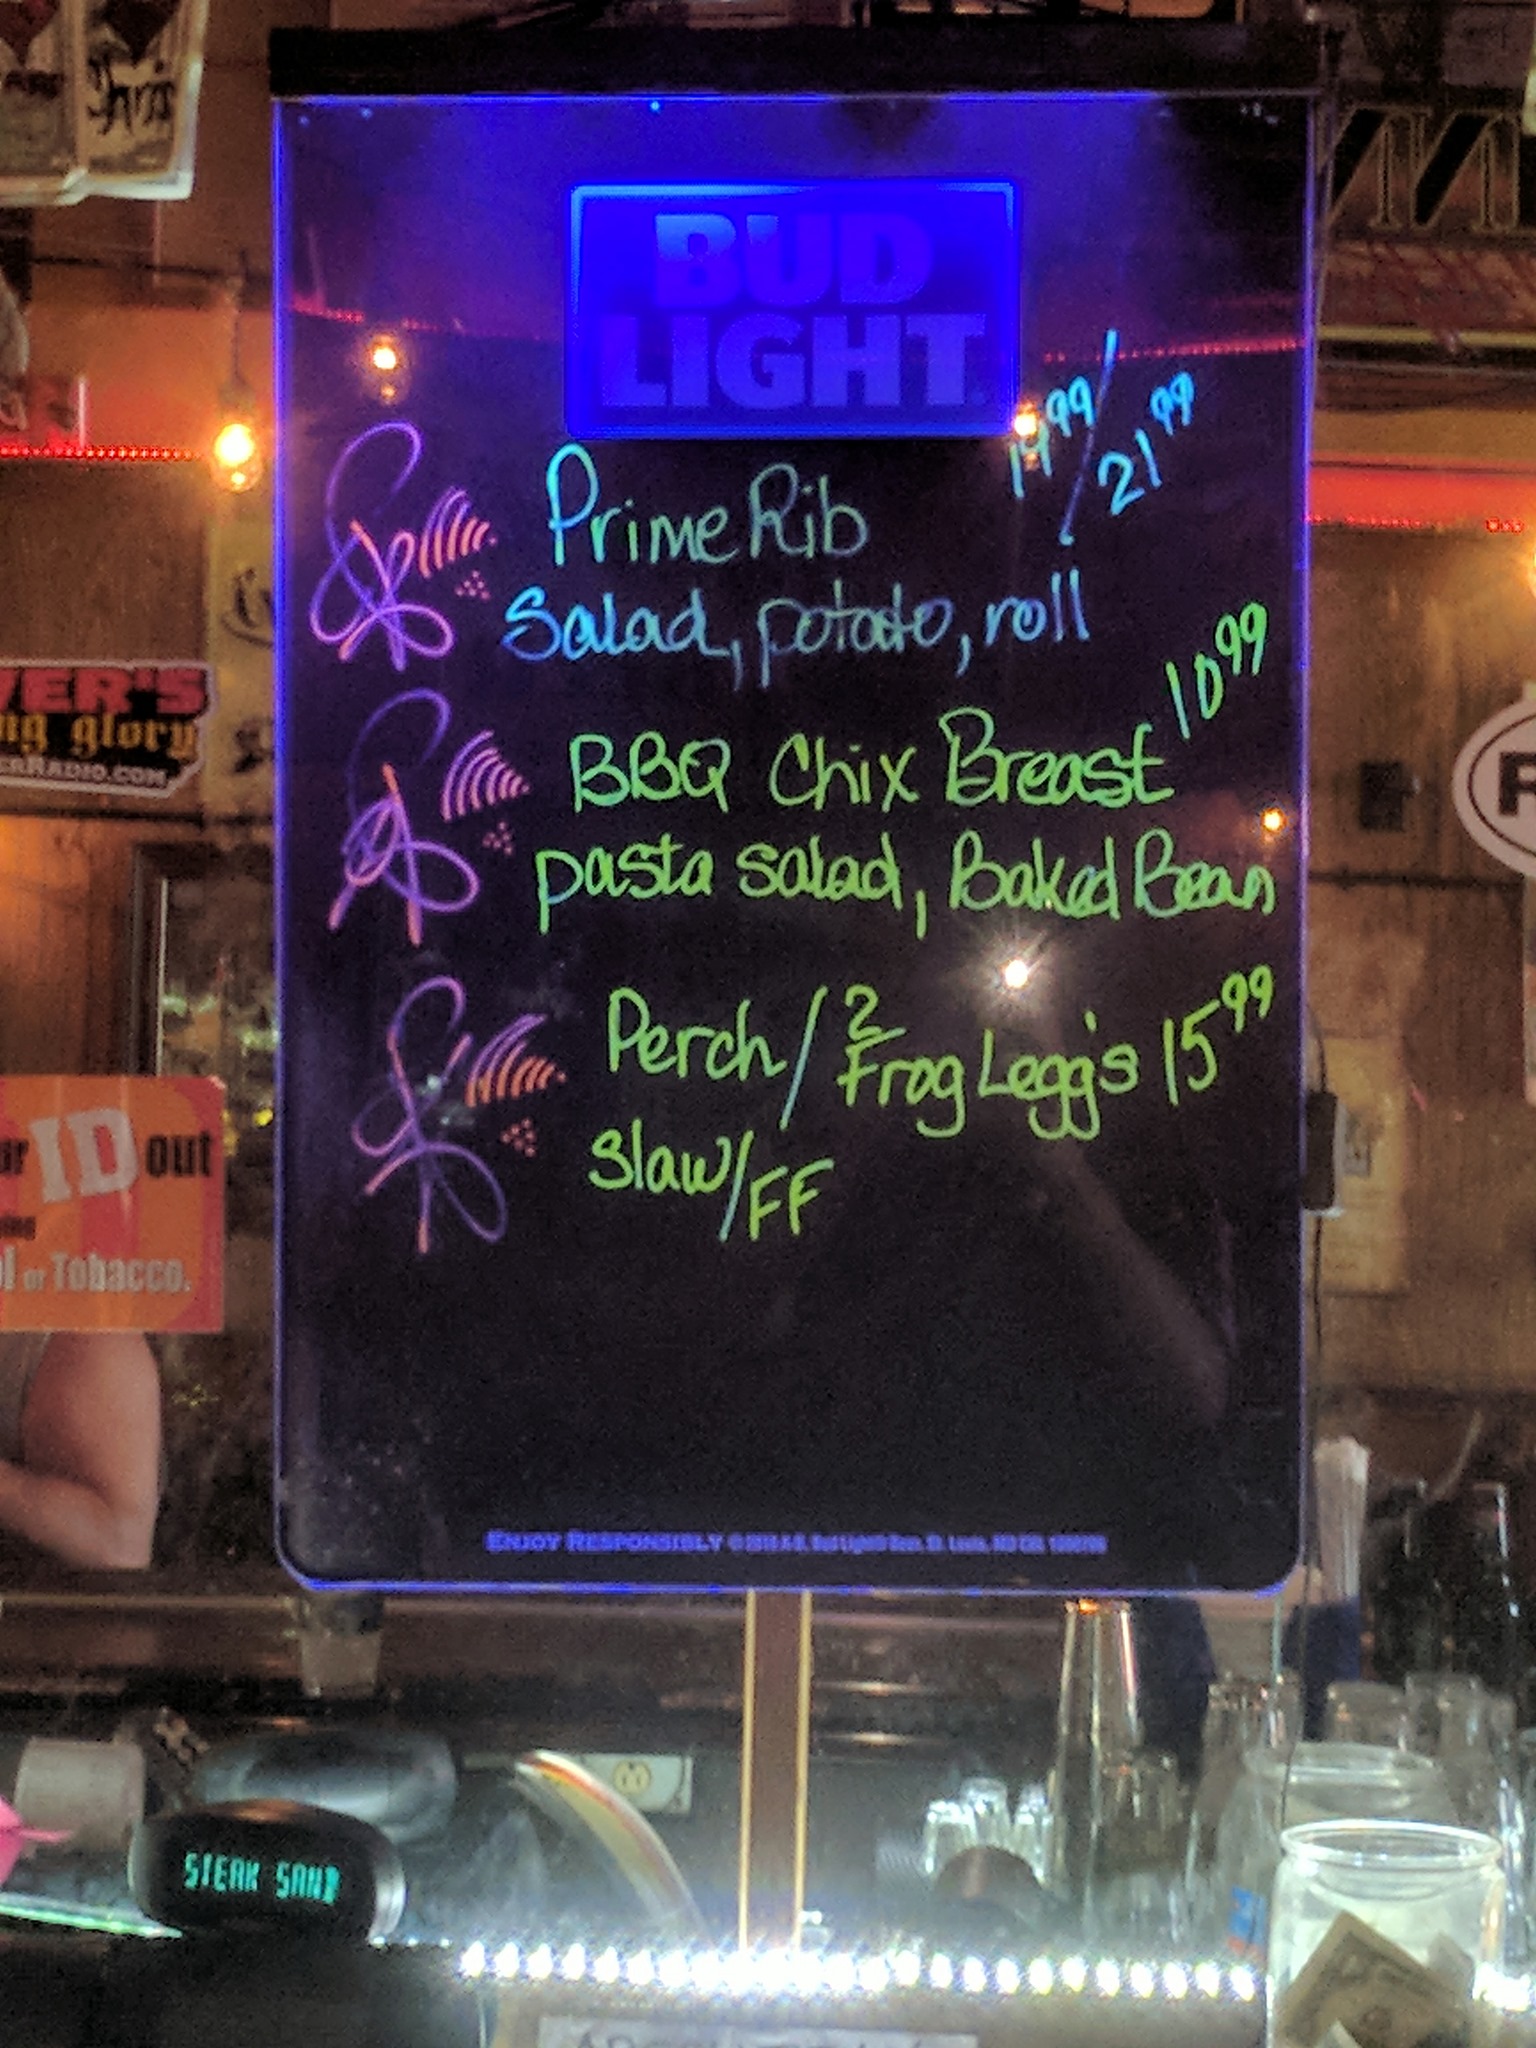 BUD
LIGHT
Prime Rib 19⁹⁹/21⁹⁹
Salad, potato, roll
BBQ Chix Breast 10⁹⁹
pasta salad, Baked Bean
Perch/2 Frog Legg's 15⁹⁹
Slaw/FF
ENJOY RESPONSIBLY
VER'S
ng glory
RADIO.COM
ur ID out
or Tobacco.
STEAK SAND